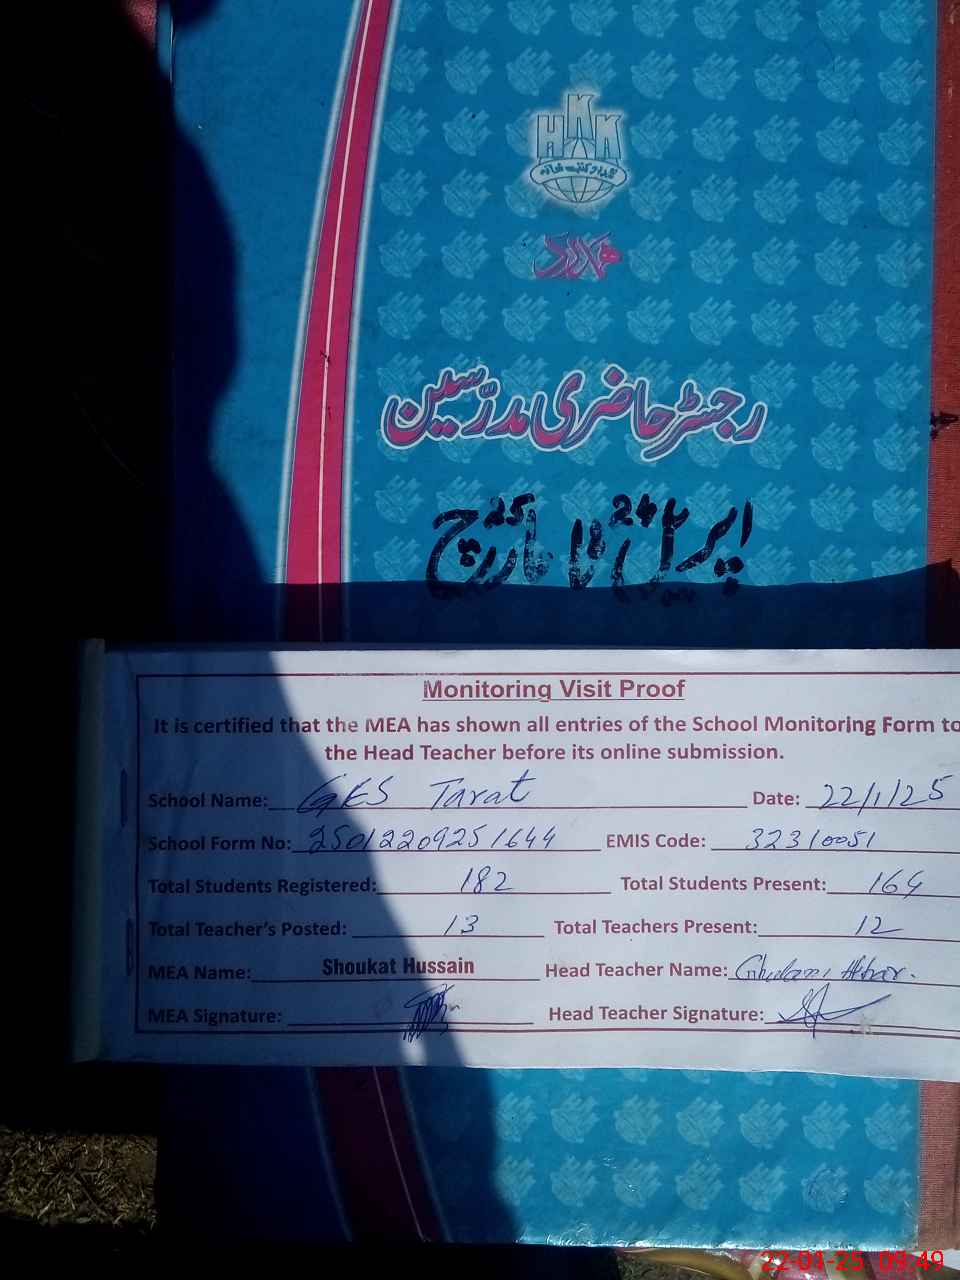 HKK
ہمدرد کتب خانہ
ہمدرد
رجسٹر حاضری مدرسین
اپریل 24 تا مارچ 25
Monitoring Visit Proof
It is certified that the MEA has shown all entries of the School Monitoring Form to
the Head Teacher before its online submission.
School Name: GES Tarat Date: 22/1/25
School Form No: 25012209251644 EMIS Code: 32310051
Total Students Registered: 182 Total Students Present: 164
Total Teacher's Posted: 13 Total Teachers Present: 12
MEA Name: Shoukat Hussain Head Teacher Name: Ghulam
MEA Signature: Head Teacher Signature:
22-01-25 09:49